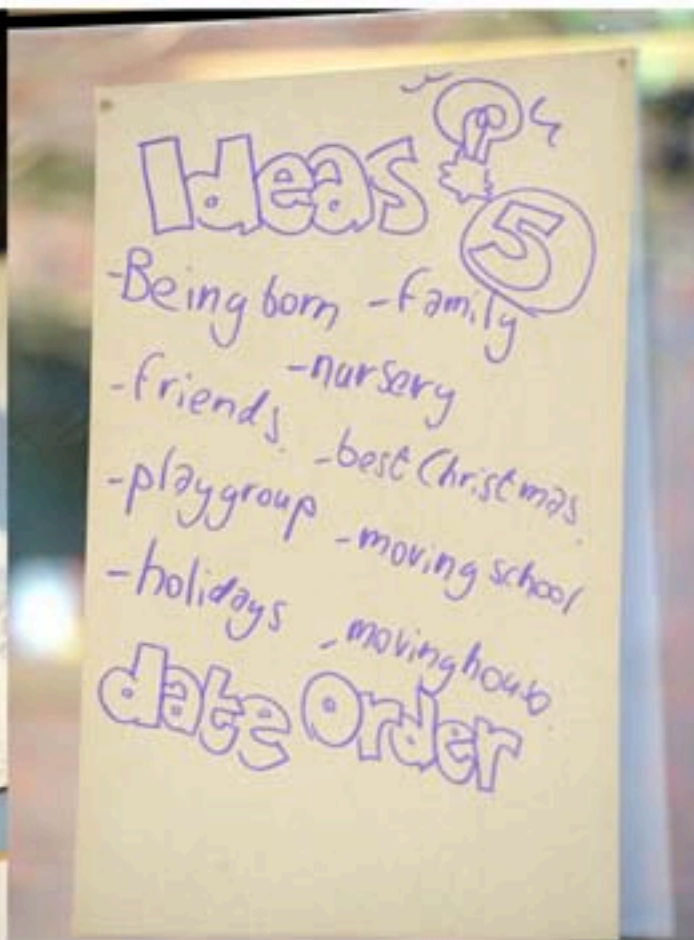 Ideas
5
-Being born -family
-nursery
-friends.
-best Christmas.
-playgroup
-moving school
-holidays
-moving house
date Order